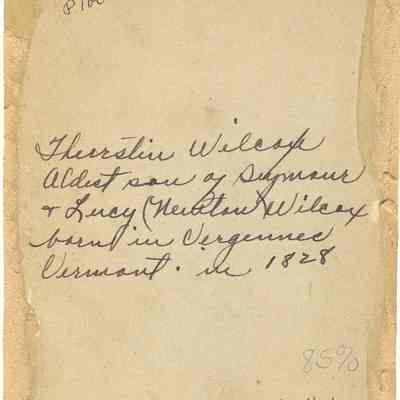 P.10
Therrstin Wilcox
Aldest son of Seymour
& Lucy (Newton) Wilcox
born in Vergennec
Vermont. in 1828
85%